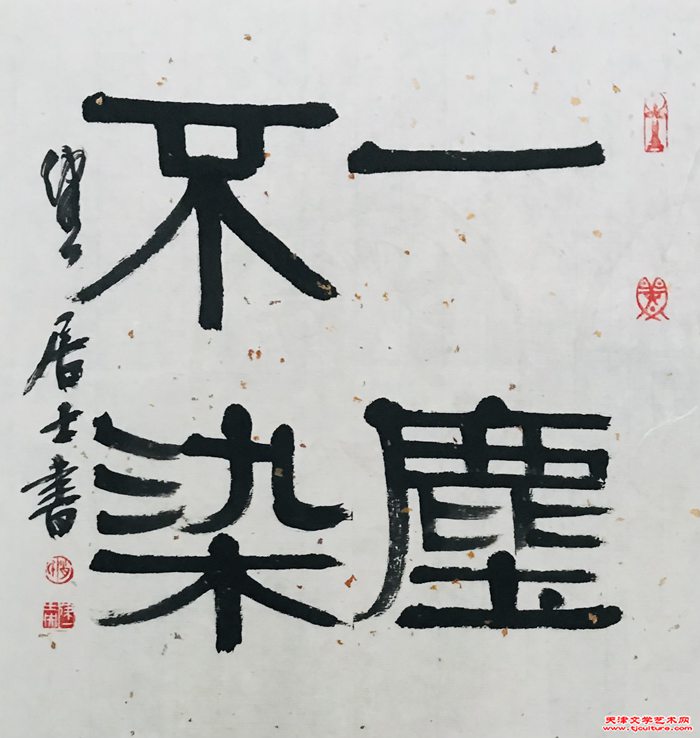 一塵
不染
居士書
天津文学艺术网
www.tjculture.com